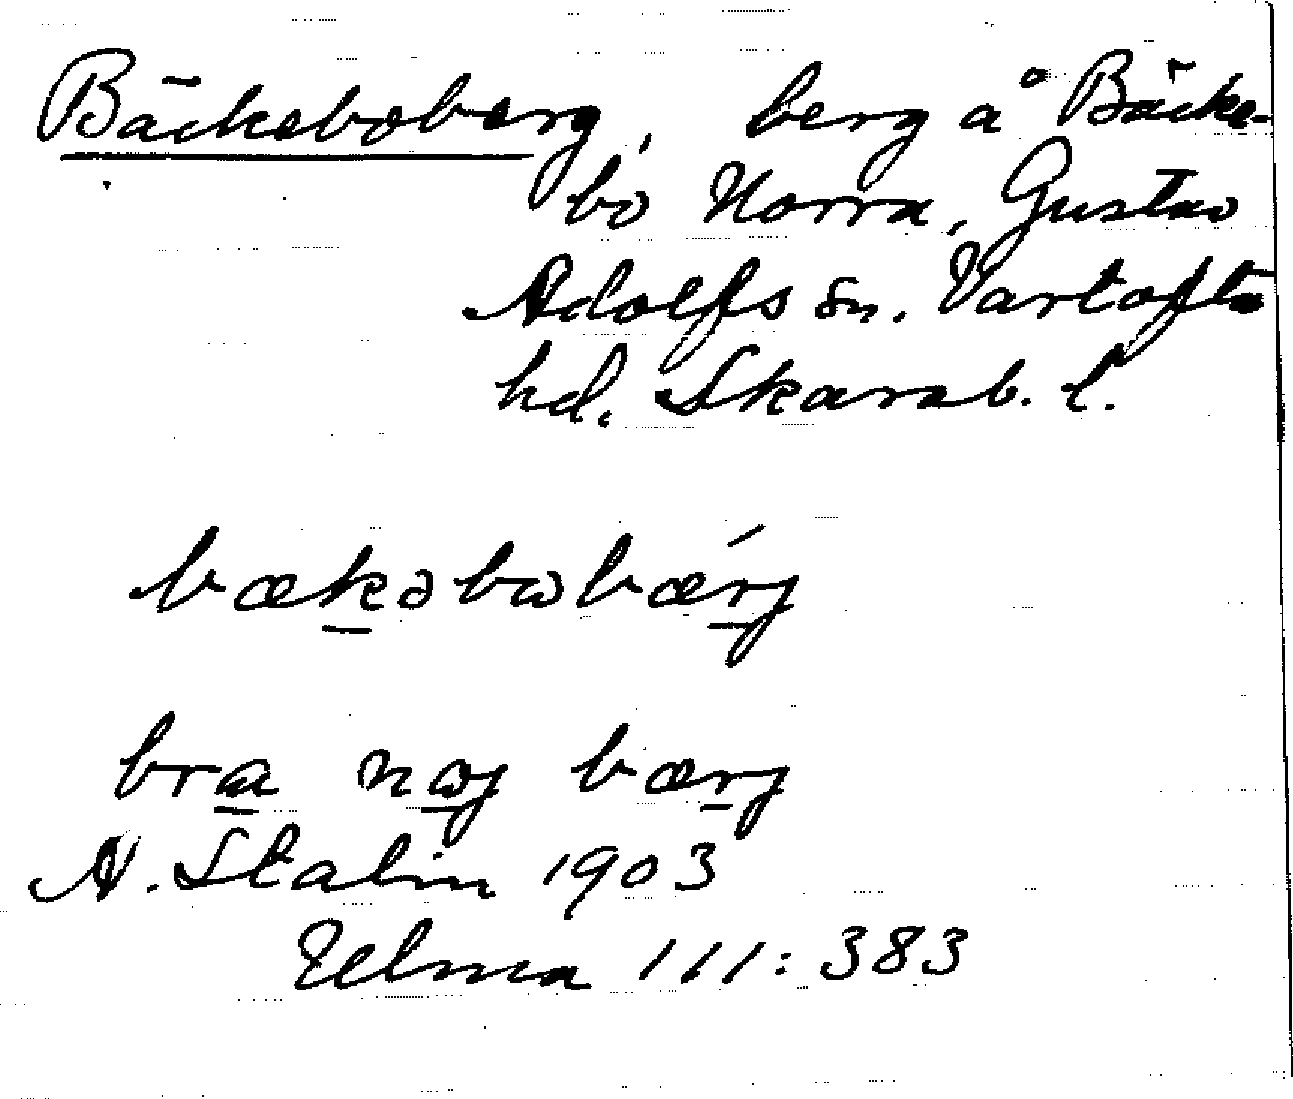 Bäckeboberg, berg å Bäcke-
bo Norra, Gustav
Adolfs sn. Vartofta
hd. Skarab. l.
bækəbωbǽrj
bra nωj bærj
A. Stalin 1903
Ulma 111:383